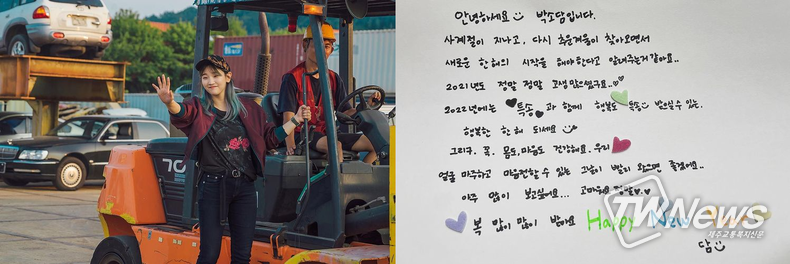 안녕하세요 박소담입니다.
사계절이 지나고, 다시 추운겨울이 찾아오면서
새로운 한해의 시작을 해야한다고 알려주는거 같아요..
2021년도 정말 정말 고생 많으셨구요..
2022년에는 특송 과 함께 행복도 특송 받으실수 있는.
행복한 한 해 되세요
그리구. 꼭. 몸도. 마음도 건강해요. 우리
얼굴 마주하고 마음전할 수 있는 그날이 빨리 왔으면 좋겠어요..
아주 많이 보고싶어요... 고마워요 정말
복 많이 많이 받아요 Happy New
담
70
TWNews
제주교통복지신문